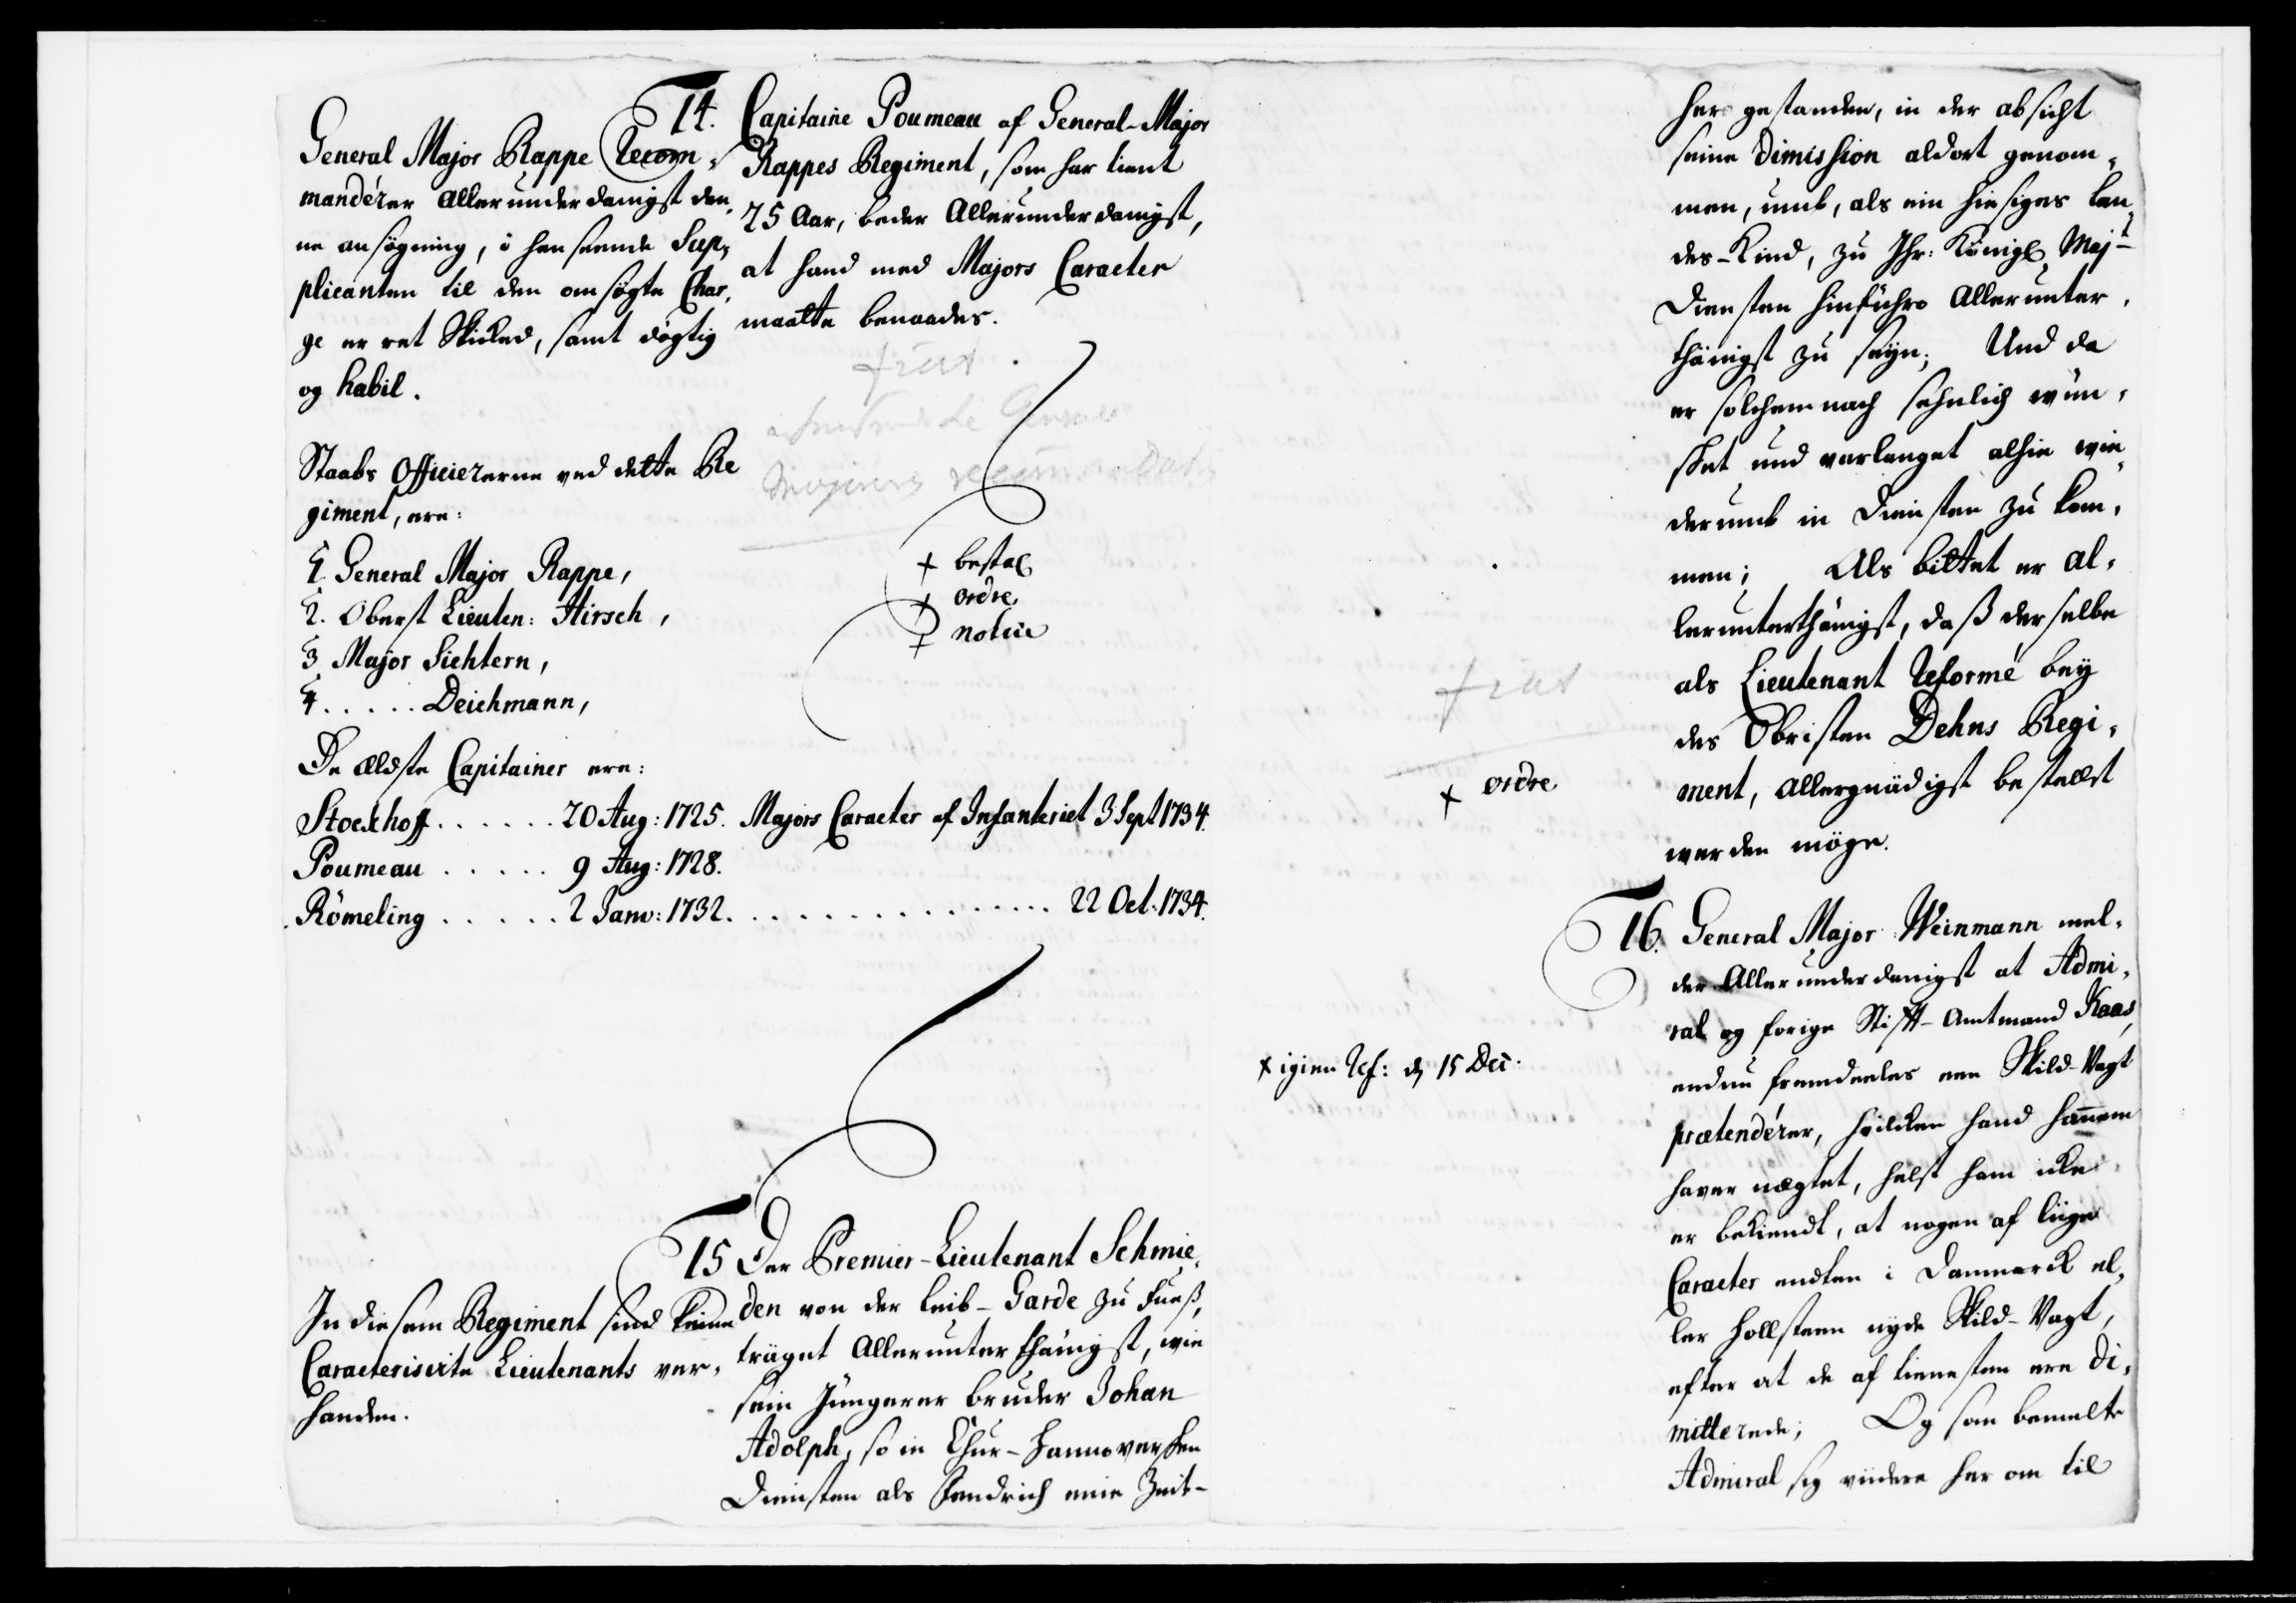 General Major Rappe Recom-
manderer Allerunderdanigst den-
ne ansøgning, i henseende Sup-
plicanten til den omsøgte Char-
ge er ret Skicked, samt døgtig
og habil.
Staabs Officiererne ved dette Re
giment, ere:
1. General Major Rappe,
2. Oberst Lieuten: Hirsch,
3 Major Sichtern,
4 ..... Deichmann,
De ældste Capitainer ere:
Stockhoff ...... 20 Aug: 1725. Majors Caracter af Infanteriet 3 Sept 1734.
Poumeau ..... 9 Aug: 1728.
Römeling ..... 2 Janv: 1732. ............... 22 Oct. 1734.
14. Capitaine Poumeau af General-Major
Rappes Regiment, som har tient
25 Aar, beder Allerunderdanigst,
at hand med Majors Caracter
maatte benaades.
fiat
General
Majorens recommendation
+ bestal
+ ordre
+ notice
In diesem Regiment sind keine
Caracterisirte Lieutenants ver-
handen.
15 Der Premier-Lieutenant Schmie-
den von der Leib-Garde zu Fueß,
träget Allerunterthänigst, wie
sein Jüngerer bruder Johan
Adolph, so in Chur-Hannoverschen
Diensten als Fendrich eine Zeit-
her gestanden, in der absicht
seine Dimission aldort genom-
men, umb, als ein hiesiges Lan-
des-Kind, zu Ihr: Königl Majt
Diensten hinführo Allerunter-
thänigst zu seyn; Und da
er solchemnach sehnlich wün-
schet und verlanget alhie wie-
derumb in Diensten zu kom-
men; Als bittet er al-
lerunterthänigst, daß derselbe
als Lieutenant Reformé bey
des Obristen Dehns Regi-
ment, Allergnädigst bestellet
werden möge.
fiat
+ ordre
16. General Major Weinmann mel-
der Allerunderdanigst at Admi-
ral og forige Stift-Amtmand Kaas,
endnu fremdeeles een Skild-Vagt
prætenderer, hvilcken hand hannem
haver nægtet, helst ham icke
er bekiendt, at nogen af liige
Caracter endten i Danmarck el-
ler Hollsteen nyde Skild-Vagt,
efter at de af tienesten ere di-
mitterede; Og som bemelte
Admiral sig viidere her om til
+ igien Ref: d 15 Dec.